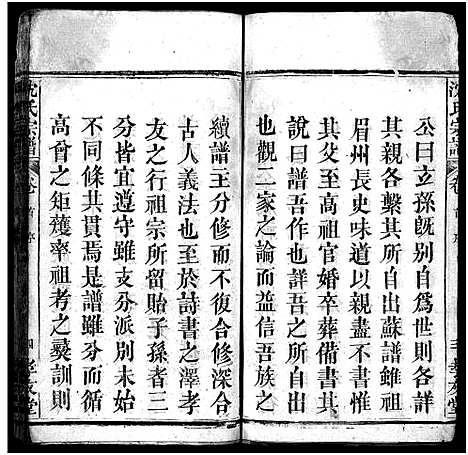 公曰立孫既别自為世則
其親各繫其所自出蘇譜雖祖
眉州長史味道以親盡不書惟
其父其祖官婚卒葬備書其
說曰譜吾作也詳吾之所自出
也觀二家之論而益信吾族之
續譜主分修而不復合修深合
古人義法也至於詩書之澤孝
友之行祖宗所留貽子孫者三
分皆宜遵守雖支分派别未始
不同條其貫焉是譜雖分而循
高曾之矩矱率祖考之彝訓則
沈氏宗譜
卷首
序
四
孝友堂
沈氏宗譜
卷
三
孝友堂